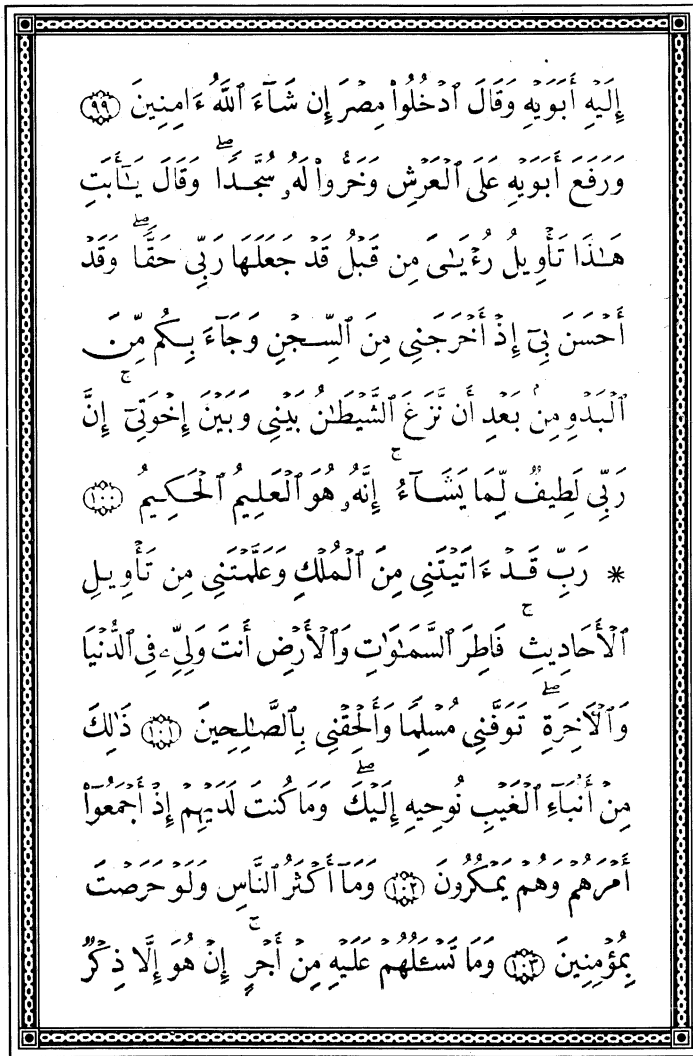 إِلَيْهِ أَبَوَيْهِ وَقَالَ ٱدْخُلُوا۟ مِصْرَ إِن شَآءَ ٱللَّهُ ءَامِنِينَ ﴿٩٩﴾
وَرَفَعَ أَبَوَيْهِ عَلَى ٱلْعَرْشِ وَخَرُّوا۟ لَهُۥ سُجَّدًا ۖ وَقَالَ يَـٰٓأَبَتِ
هَـٰذَا تَأْوِيلُ رُءْيَـٰىَ مِن قَبْلُ قَدْ جَعَلَهَا رَبِّى حَقًّا ۖ وَقَدْ
أَحْسَنَ بِىٓ إِذْ أَخْرَجَنِى مِنَ ٱلسِّجْنِ وَجَآءَ بِكُم مِّنَ
ٱلْبَدْوِ مِنۢ بَعْدِ أَن نَّزَغَ ٱلشَّيْطَـٰنُ بَيْنِى وَبَيْنَ إِخْوَتِىٓ ۚ إِنَّ
رَبِّى لَطِيفٌ لِّمَا يَشَآءُ ۚ إِنَّهُۥ هُوَ ٱلْعَلِيمُ ٱلْحَكِيمُ ﴿١٠٠﴾
* رَبِّ قَدْ ءَاتَيْتَنِى مِنَ ٱلْمُلْكِ وَعَلَّمْتَنِى مِن تَأْوِيلِ
ٱلْأَحَادِيثِ ۚ فَاطِرَ ٱلسَّمَـٰوَٰتِ وَٱلْأَرْضِ أَنتَ وَلِىِّۦ فِى ٱلدُّنْيَا
وَٱلْـَٔاخِرَةِ ۖ تَوَفَّنِى مُسْلِمًا وَأَلْحِقْنِى بِٱلصَّـٰلِحِينَ ﴿١٠١﴾ ذَٰلِكَ
مِنْ أَنۢبَآءِ ٱلْغَيْبِ نُوحِيهِ إِلَيْكَ ۖ وَمَا كُنتَ لَدَيْهِمْ إِذْ أَجْمَعُوٓا۟
أَمْرَهُمْ وَهُمْ يَمْكُرُونَ ﴿١٠٢﴾ وَمَآ أَكْثَرُ ٱلنَّاسِ وَلَوْ حَرَصْتَ
بِمُؤْمِنِينَ ﴿١٠٣﴾ وَمَا تَسْـَٔلُهُمْ عَلَيْهِ مِنْ أَجْرٍ ۚ إِنْ هُوَ إِلَّا ذِكْرٌ